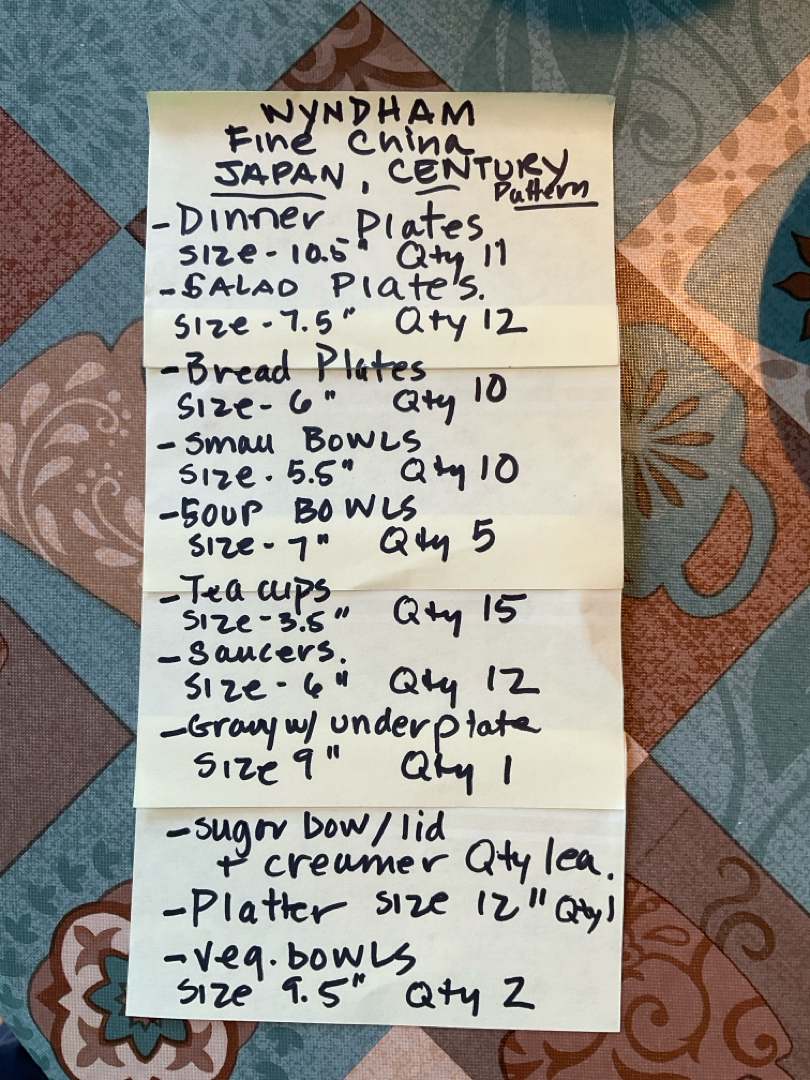 WYNDHAM
Fine China
JAPAN, CENTURY
Pattern
- Dinner Plates
Size - 10.5" Qty 11
- SALAD Plates.
Size - 7.5" Qty 12
- Bread Plates
Size - 6" Qty 10
- Small BOWLS
Size. 5.5" Qty 10
- SOUP BOWLS
Size - 7" Qty 5
- Tea cups
Size - 3.5" Qty 15
- Saucers.
Size - 6" Qty 12
- Gravy w/ underplate
Size 9" Qty 1
- sugar bow/lid
+ creamer Qty 1ea.
- Platter size 12" Qty 1
- Veg. bowls
Size 9.5" Qty 2